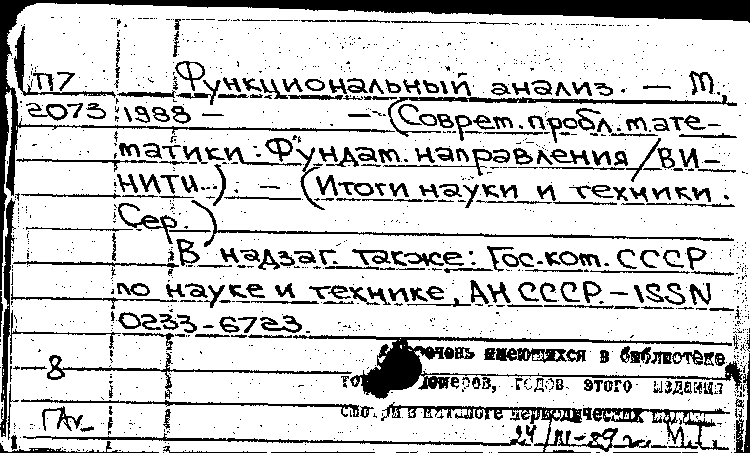 П7 Функциональный анализ. — М.,
2073 1988 — — (Соврет. пробл. мате-
матики: Фундат. направления / ВИ-
НИТИ...). — (Итоги науки и техники.
Сер. )
В надзаг. также: Гос. ком. СССР
по науке и технике, АН СССР. – ISSN
0233-6723.
имеющихся в библиотеке
8 номеров, годов этого издания
смотри в каталоге периодических
ГАч 24/XI-89 г.